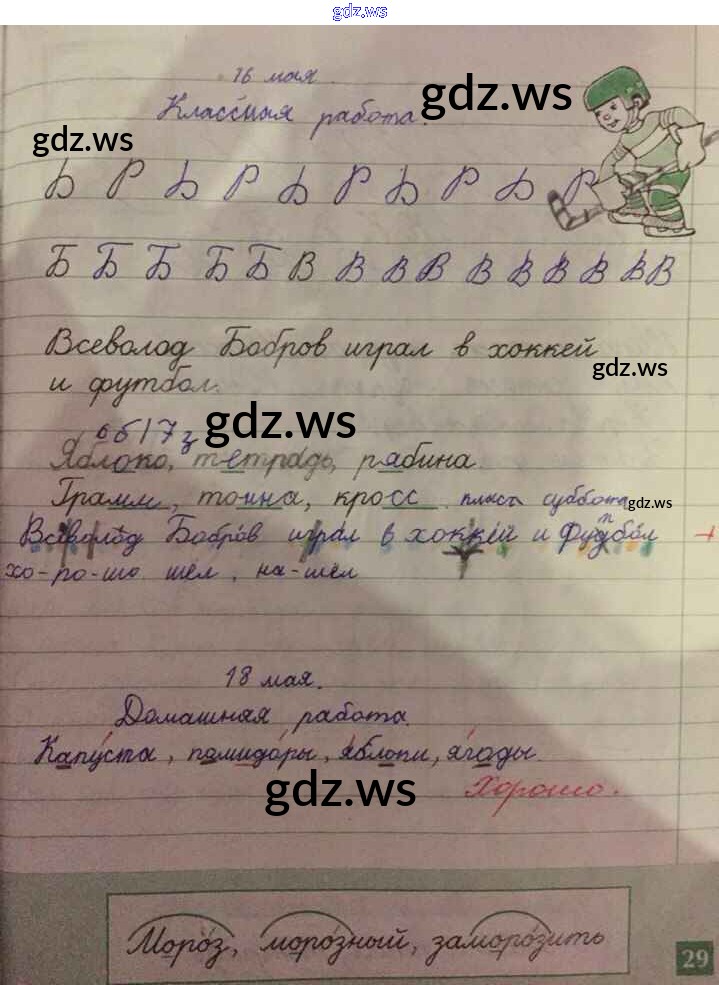 gdz.ws
16 мая.
Классная работа.
gdz.ws
gdz.ws
Б Р Б Р Б Р Б Р Б Р
Б Б Б Б Б В В В В В В В В В В
Всеволод Бобров играл в хоккей
gdz.ws
и футбол.
gdz.ws
Яблоко, тетрадь, рябина.
Грамм, тонна, кросс класс суббота
gdz.ws
Всеволод Бобров играл в хоккей и Фудбол
п
хо-ро-шо шёл, на-шёл
18 мая.
Домашняя работа.
Капуста, памидоры, яблоки, ягоды.
gdz.ws
Хорошо.
Мороз, морозный, заморозить
29